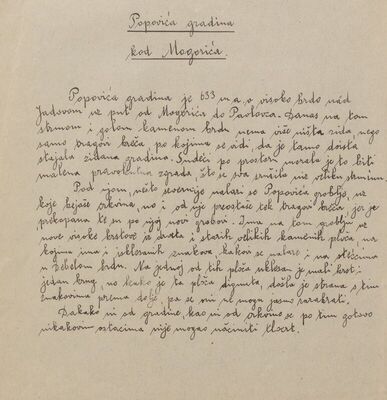 Popovića gradina
kod Mogorića.
Popovića gradina je 633 m a. v. visoko brdo nad
Jadovom uz put od Mogorića do Pavlovca. Danas na tom
strmom i golom kamenom brdu nema više ništa zida, nego
samo tragovi kreča, po kojima se vidi, da je tamo doista
stajala zidana gradina. Sudeći po prostoru morala je to biti
malena zgrada, što se sva srušila niz veliku strminu.
Pod njom, nešto sjevernije nalazi se Popovića groblje, na
koje bejaše crkvina, no i od nje preostaše tek tragovi kreča, jer je
prekopana te su po njoj novi grobovi. Ima na tom groblju uz
nove visoke krstove iz drveta i starih velikih kamenih ploča, na
kojima ima i uklesanih znakova, kakovi se nalaze i na stećcima
u Debelom brdu. Na jednoj od tih ploča uklesan je mali krst i
jedan krug, no kako je ta ploča dignuta, došla je strana s tim
znakovima prema dolje, pa se nije mogao jasno razabrati.
Dakako ni od gradine, kao ni od crkvine se po tim gotovo
nikakovim ostacima nije mogao načiniti tlocrt.